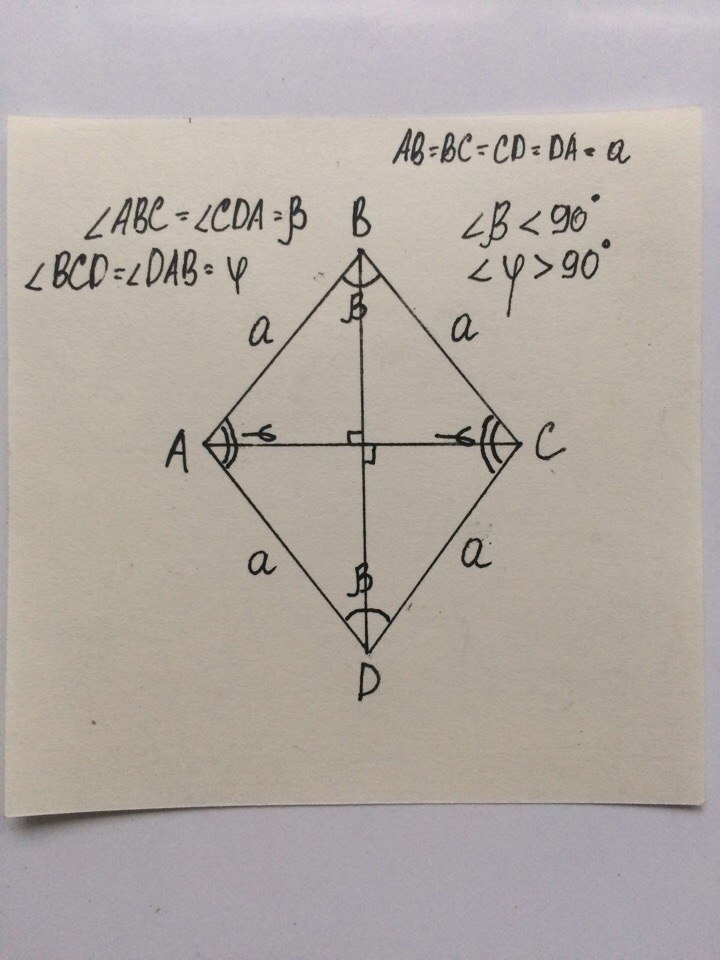 AB=BC=CD=DA=a
∠ABC=∠CDA=β
∠BCD=∠DAB=φ
∠β<90°
∠φ>90°
B
β
a
a
A
φ
φ
C
a
a
β
D